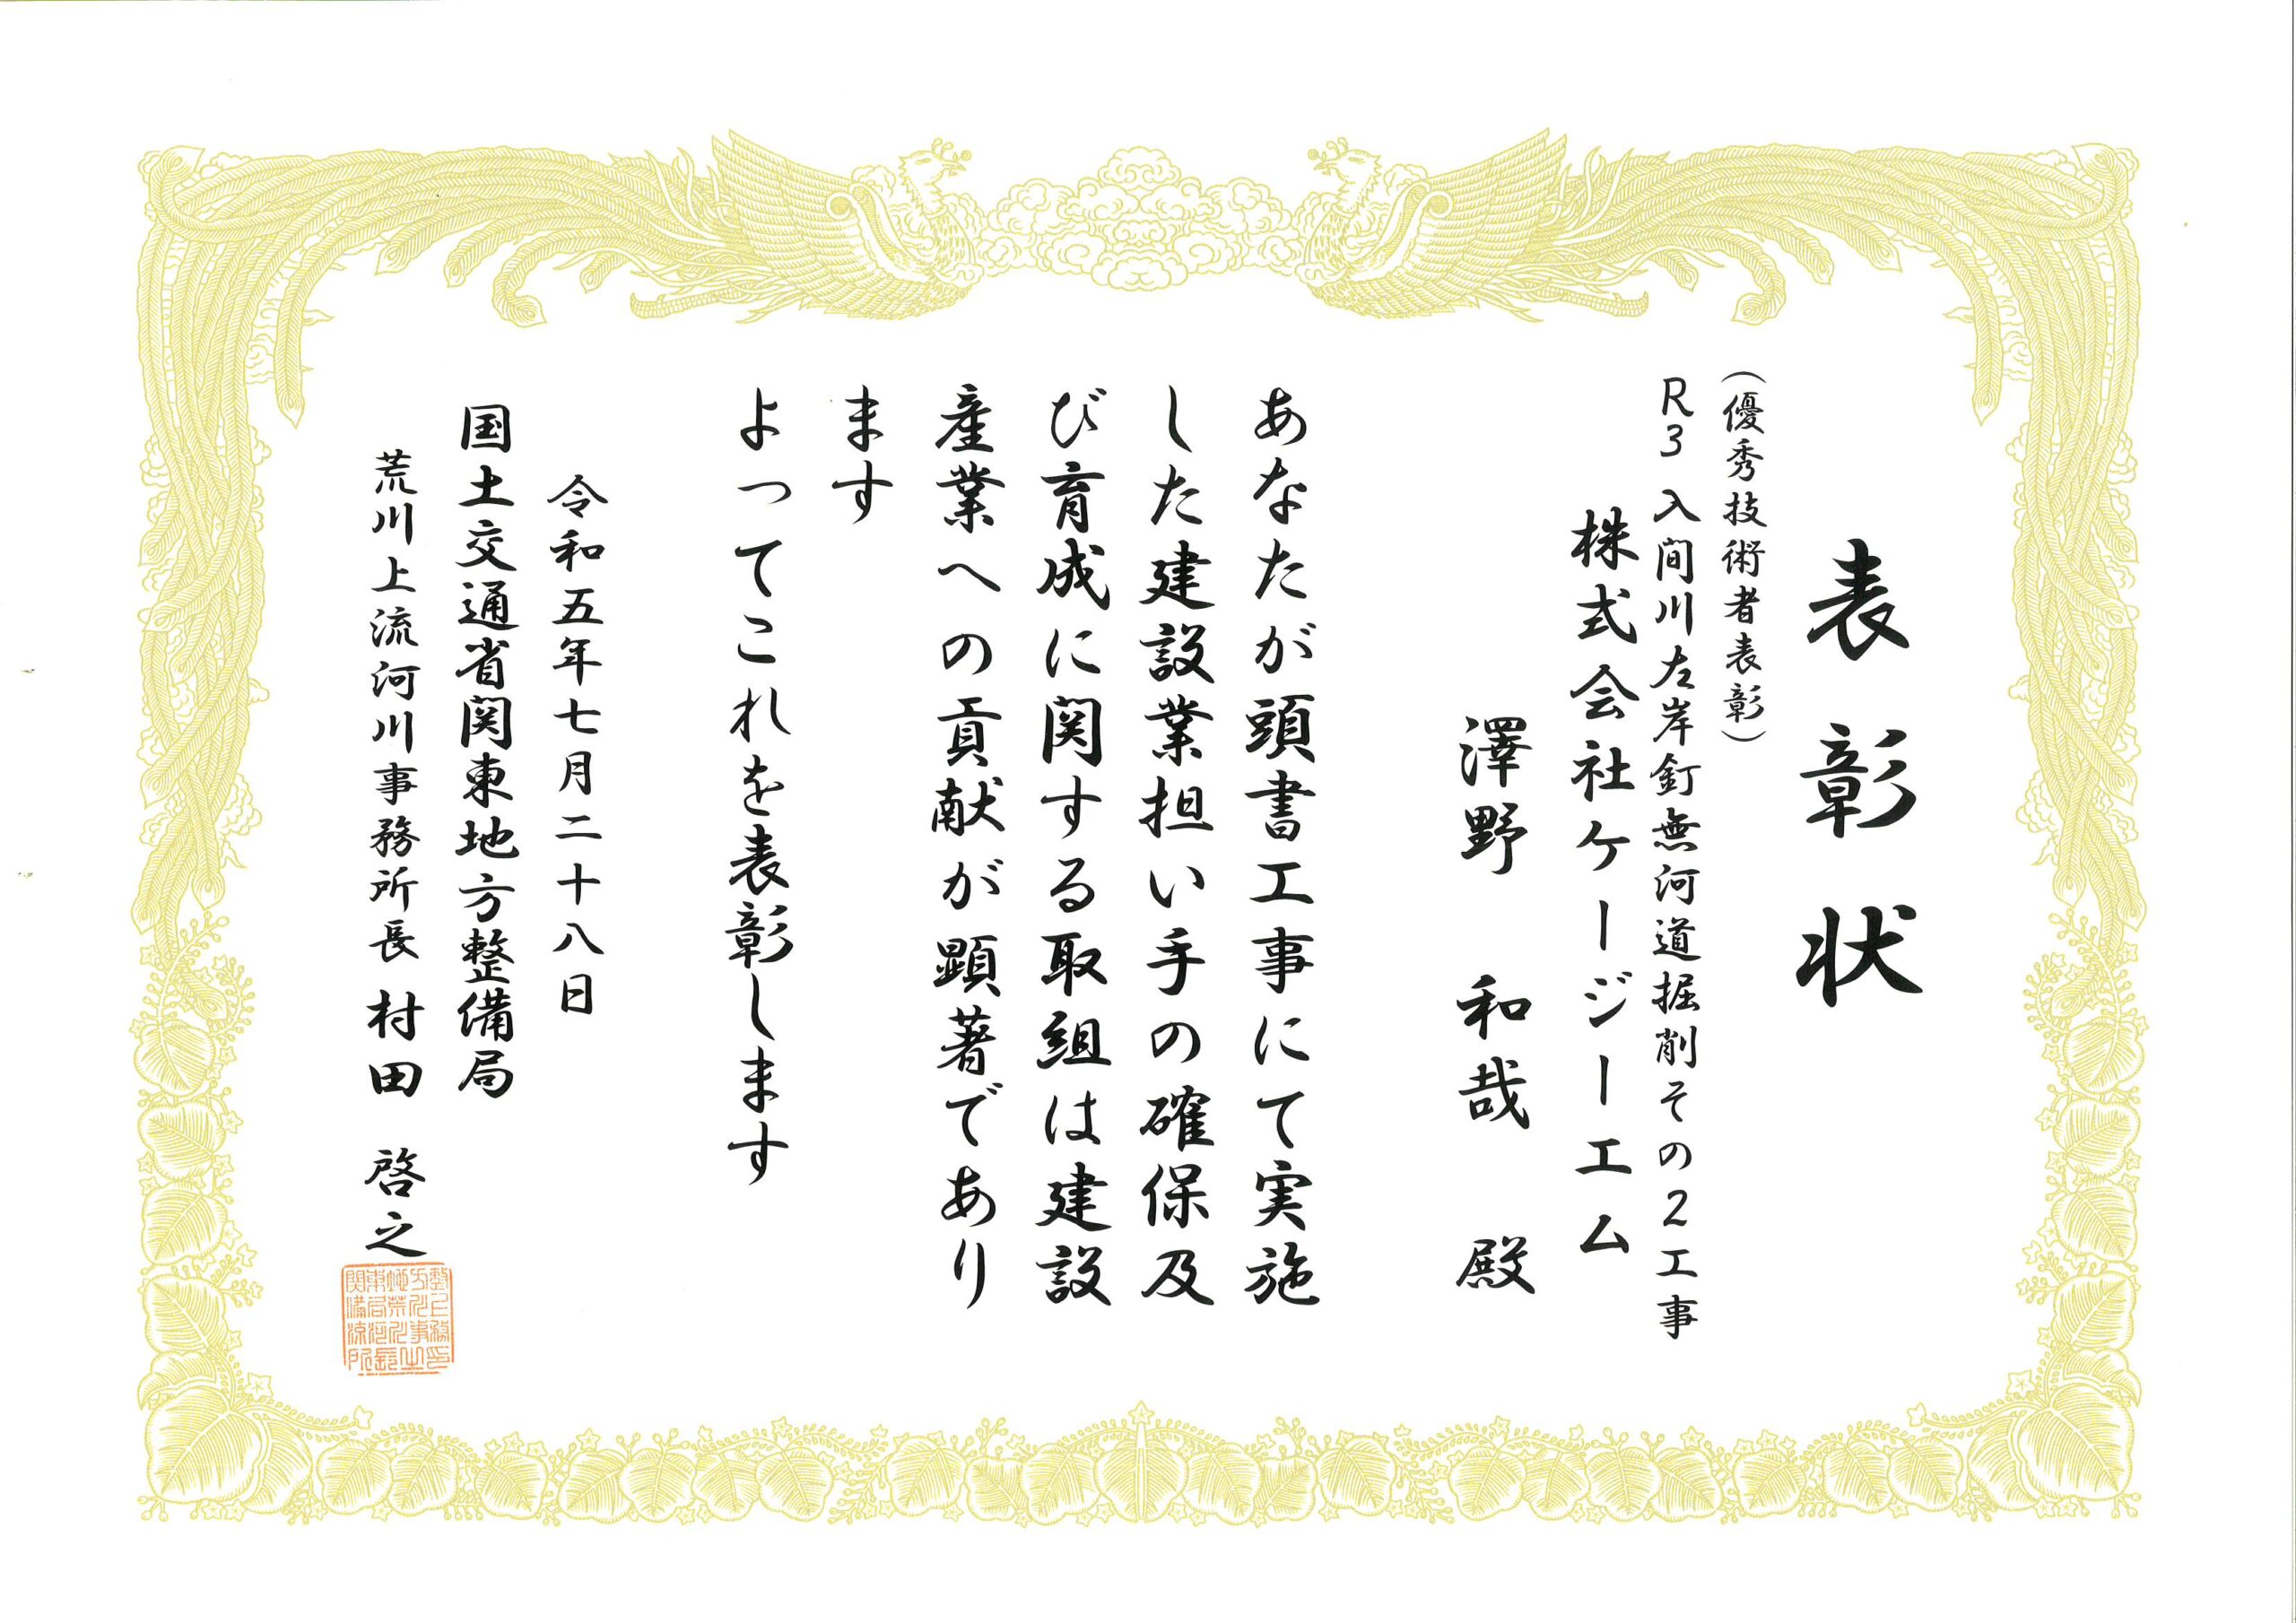 表彰状
(優秀技術者表彰)
R3入間川左岸釘無河道掘削その2工事
株式会社ケージーエム
澤野 和哉 殿
あなたが頭書工事にて実施
した建設業担い手の確保及
び育成に関する取組は建設
産業への貢献が顕著であり
ます
よってこれを表彰します
令和五年七月二十八日
国土交通省関東地方整備局
荒川上流河川事務所長 村田 啓之